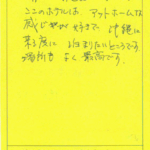 このホテルは、アットホームな
感じがが好きで 沖縄に
来る度に 泊まりたいところです。
場所も よく 最高です。